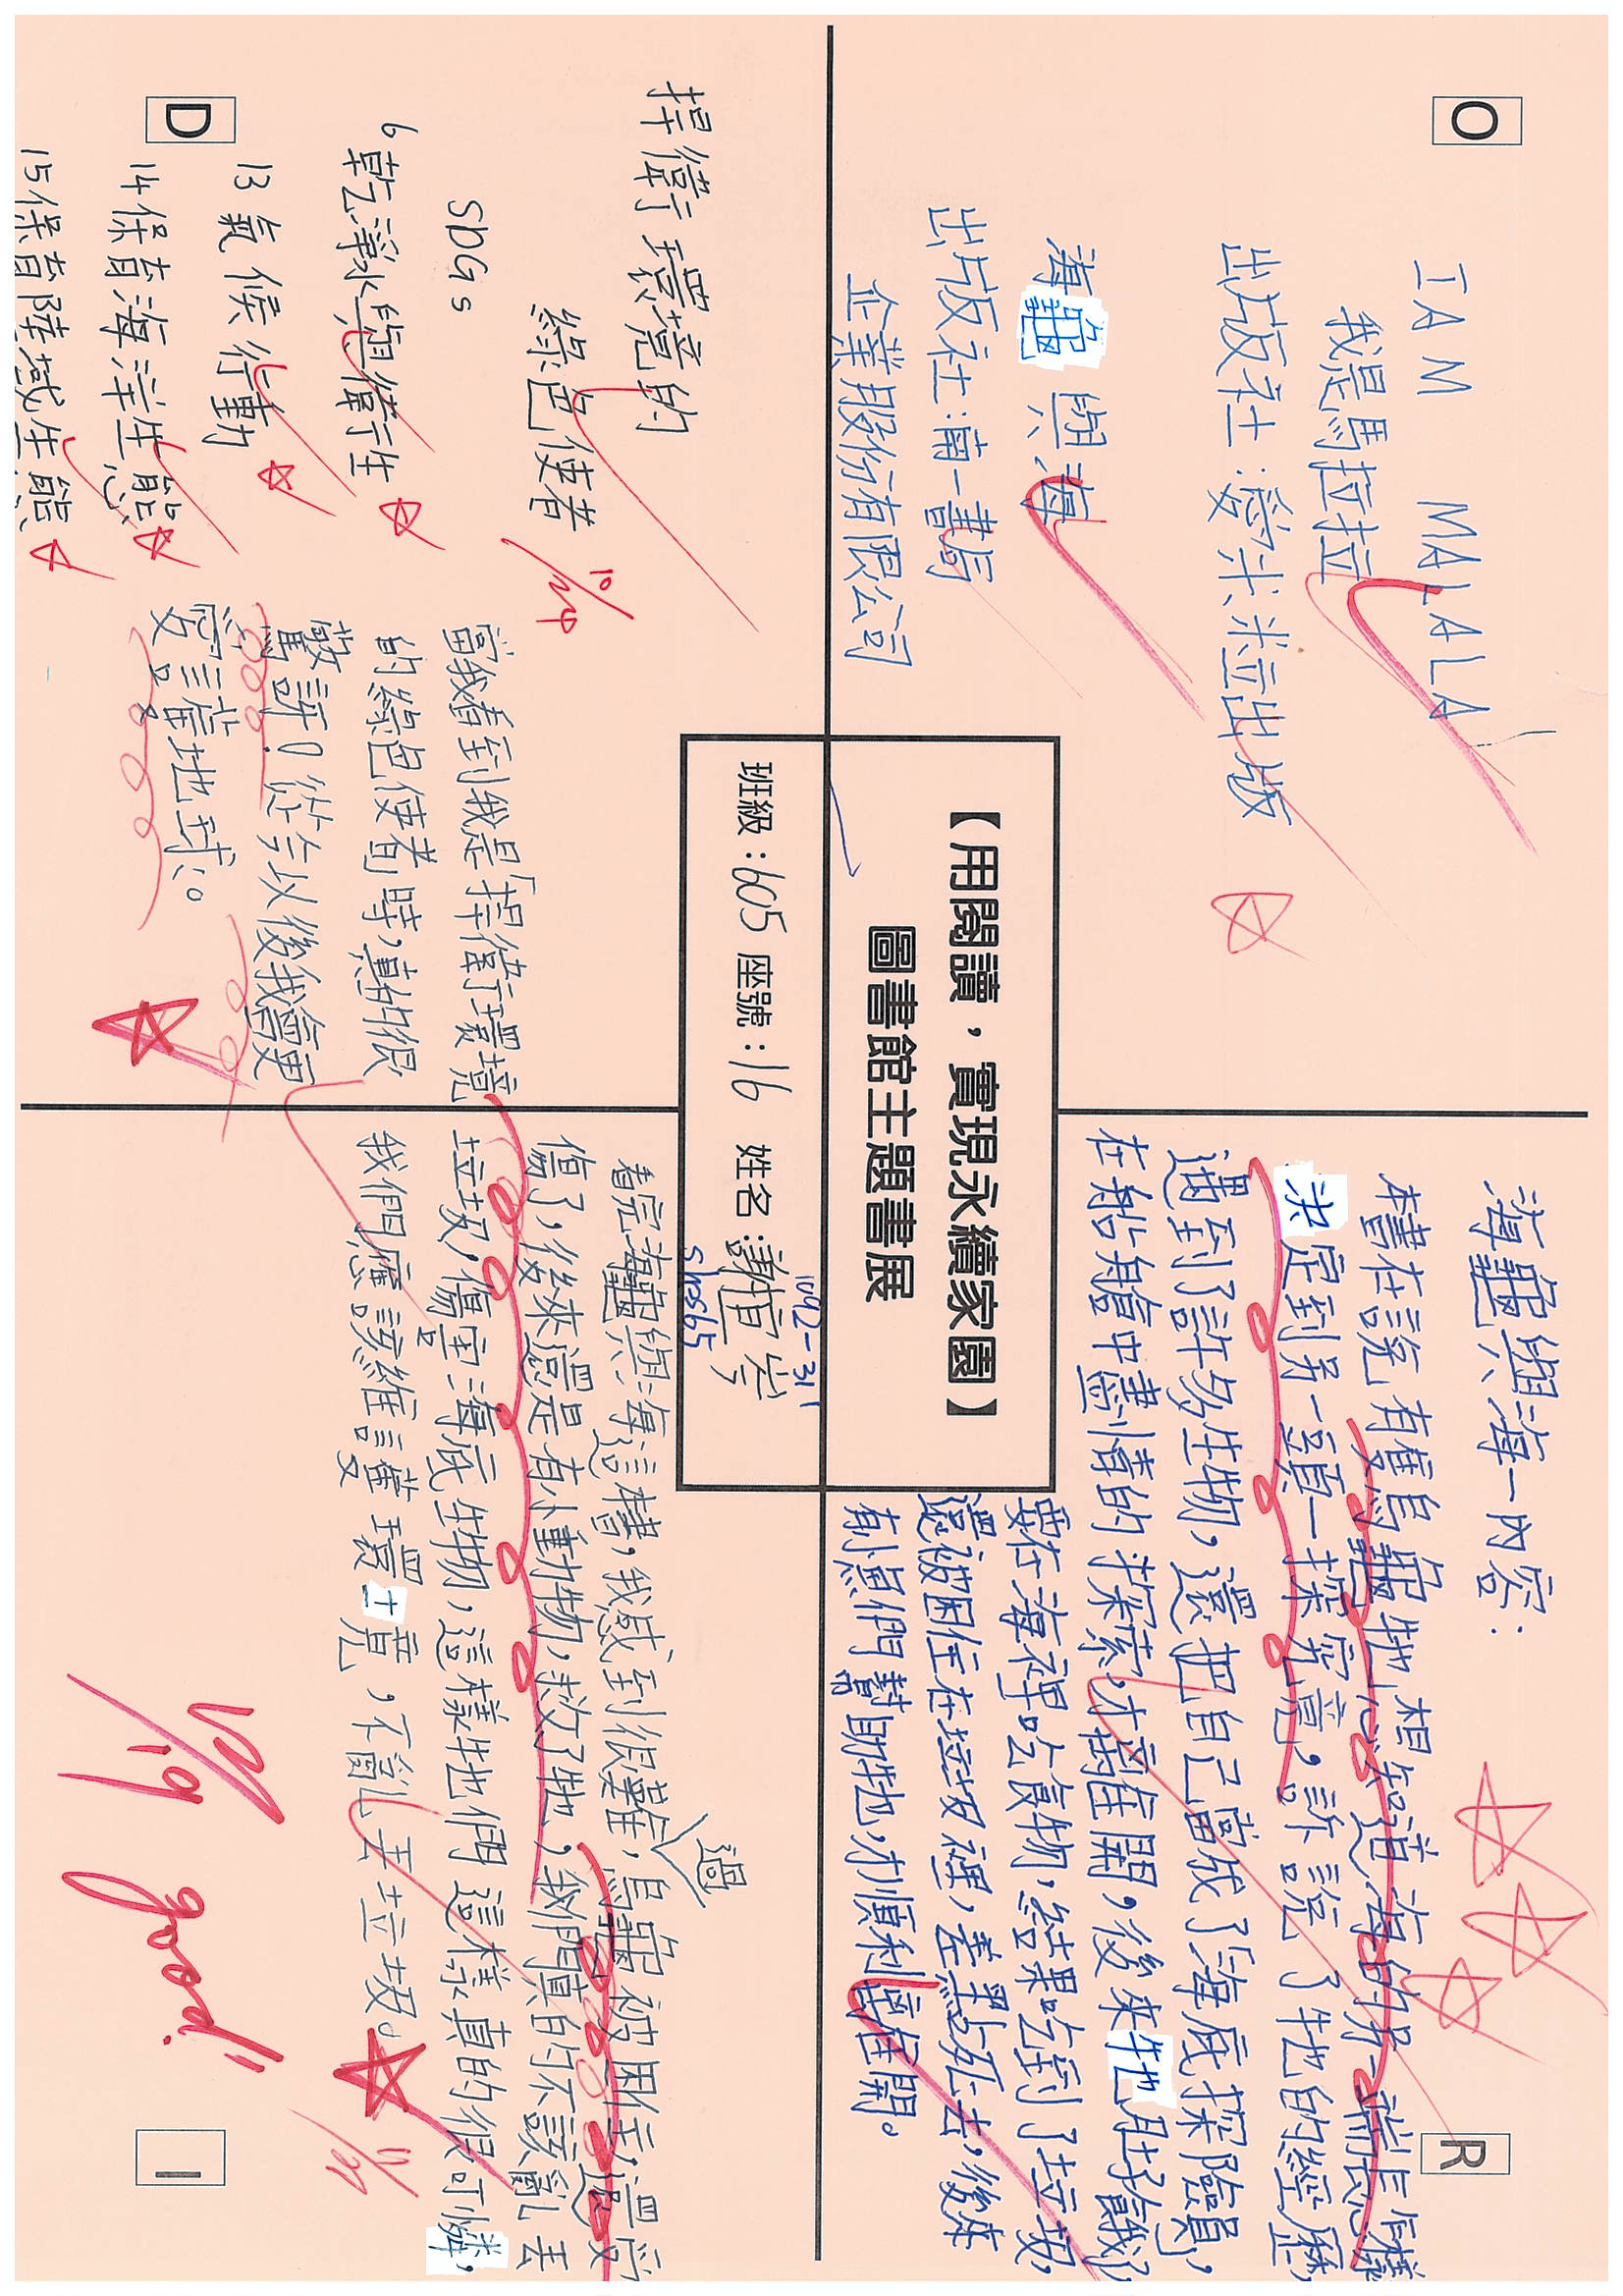 O
I AM MALALA
我是馬拉拉
出版社:愛米粒出版
海龜與海
出版社:南一書局
企業股份有限公司
R
海龜與海-內容:
本書在說有隻烏龜牠想知道海的另一端長怎樣
決定到另一頭一探究竟,訴說了牠的經歷
遇到了許多生物,還把自己當成了海底探險員,
在船艙中盡情的探索,才離開,後來牠肚子餓了,
要在海裡吃食物,結果吃到了垃圾,
還被困住在垃圾裡,差點死去,後來
有魚們幫助牠,才順利離開。
【用閱讀,實現永續家園】
圖書館主題書展
班級:605 座號:16 姓名:謝恒岑
1092-311
S110565
D
捍衛環境的
綠色使者
10/24
SDGs
6乾淨水與衛生
13氣候行動
14保育海洋生態
15保育陸域生態
當我看到我是「捍衛環境
的綠色使者」時,真的很
驚訝!從今以後我會更
愛護地球。
I
看完海龜與海這本書,我感到很難過,烏龜被困住,還受
傷了,後來還是有小動物,救了牠,我們真的不該亂丟
垃圾,傷害海底生物,這樣牠們這樣真的很可憐,
我們應該維護環境,不亂丟垃圾。
11/21
1/9
good!